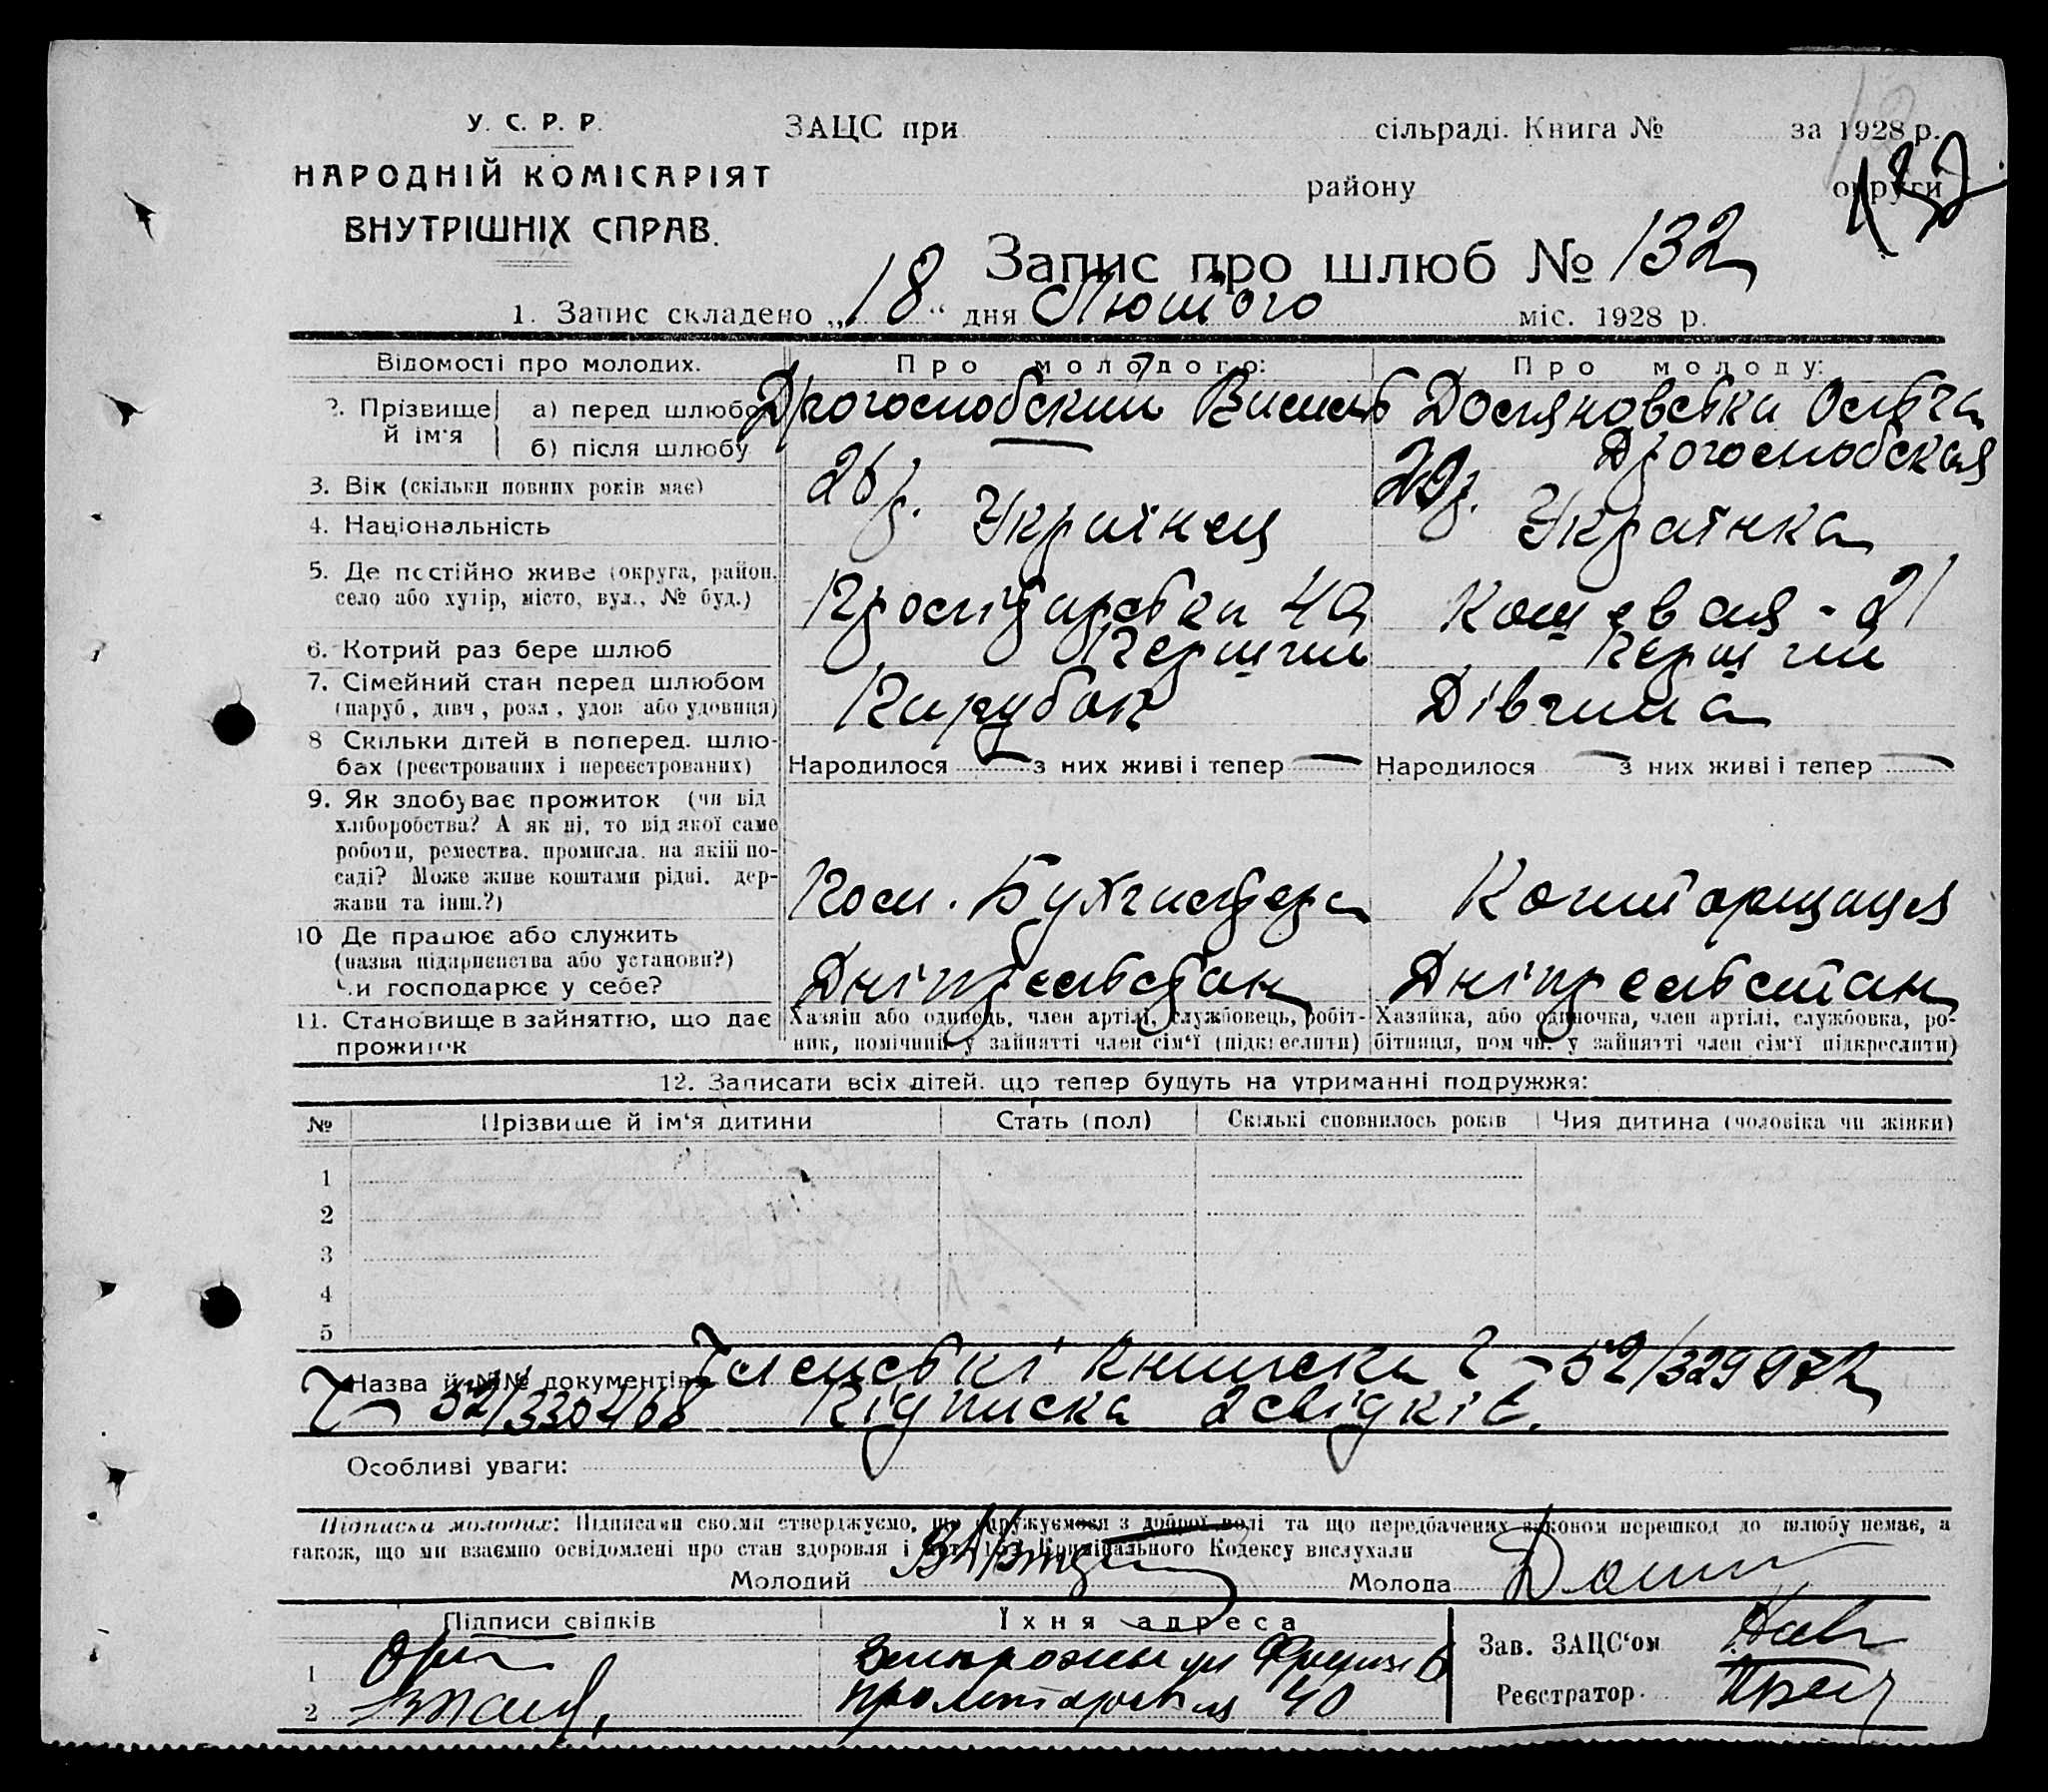 У. С. Р. Р.
НАРОДНІЙ КОМІСАРІЯТ
ВНУТРІШНІХ СПРАВ.
ЗАЦС при сільраді. Книга № за 1928 р.
району округи
132
Запис про шлюб № 132
1. Запис складено „18“ дня Лютого міс. 1928 р.
Відомості про молодих. Про молодого: Про молоду:
2. Прізвище й ім'я
а) перед шлюбом
б) після шлюбу
Дрогослюбская
3. Вік (скільки повних років має) 26 р. 20 р.
4. Національність Українец Українка
5. Де постійно живе (округа, район, село або хутір, місто, вул., № буд.) 40 21
6. Котрий раз бере шлюб Перший Перший
7. Сімейний стан перед шлюбом (паруб., дівч., розл., удов. або удовиця) Парубок Дівчина
8 Скільки дітей в поперед. шлюбах (реєстрованих і нереєстрованих)
Народилося — з них живі і тепер — Народилося — з них живі і тепер —
9. Як здобуває прожиток (чи від
хліборобства? А як ні, то від якої саме
роботи, ремества, промисла, на якій по-
саді? Може живе коштами рідні, дер-
жави та інш.?)
Пом. Бухгалтера Конторщица
10 Де працює або служить
(назва підприємства або установи?)
Чи господарює у себе?
Дніпрельстан Дніпрельстан
11. Становище в зайняттю, що дає прожиток
Хазяїн або одинець, член артілі, службовець, робіт-
ник, помічний у зайнятті член сім'ї (підкреслити)
Хазяйка, або одиночка, член артілі, службовка, ро-
бітниця, помічн. у зайнятті член сім'ї підкреслити)
12. Записати всіх дітей, що тепер будуть на утриманні подружжя:
№ Прізвище й ім'я дитини Стать (пол) Скількі сповнилось років Чия дитина (чоловіка чи жінки)
1
2
3
4
5
Назва й №№ документів Членські книжки 52/329972
52/330468 Підписка 2 свідків.
Особливі уваги:
Підписка молодих: Підписами своїми стверджуємо, що одружуємося з доброї волі та що передбачених законом перешкод до шлюбу немає, а
також, що ми взаємно освідомлені про стан здоровля і Кримінального Кодексу вислухали
Молодий Молода
Підписи свідків Їхня адреса
1
2 40
Зав. ЗАЦС'ом
Реєстратор